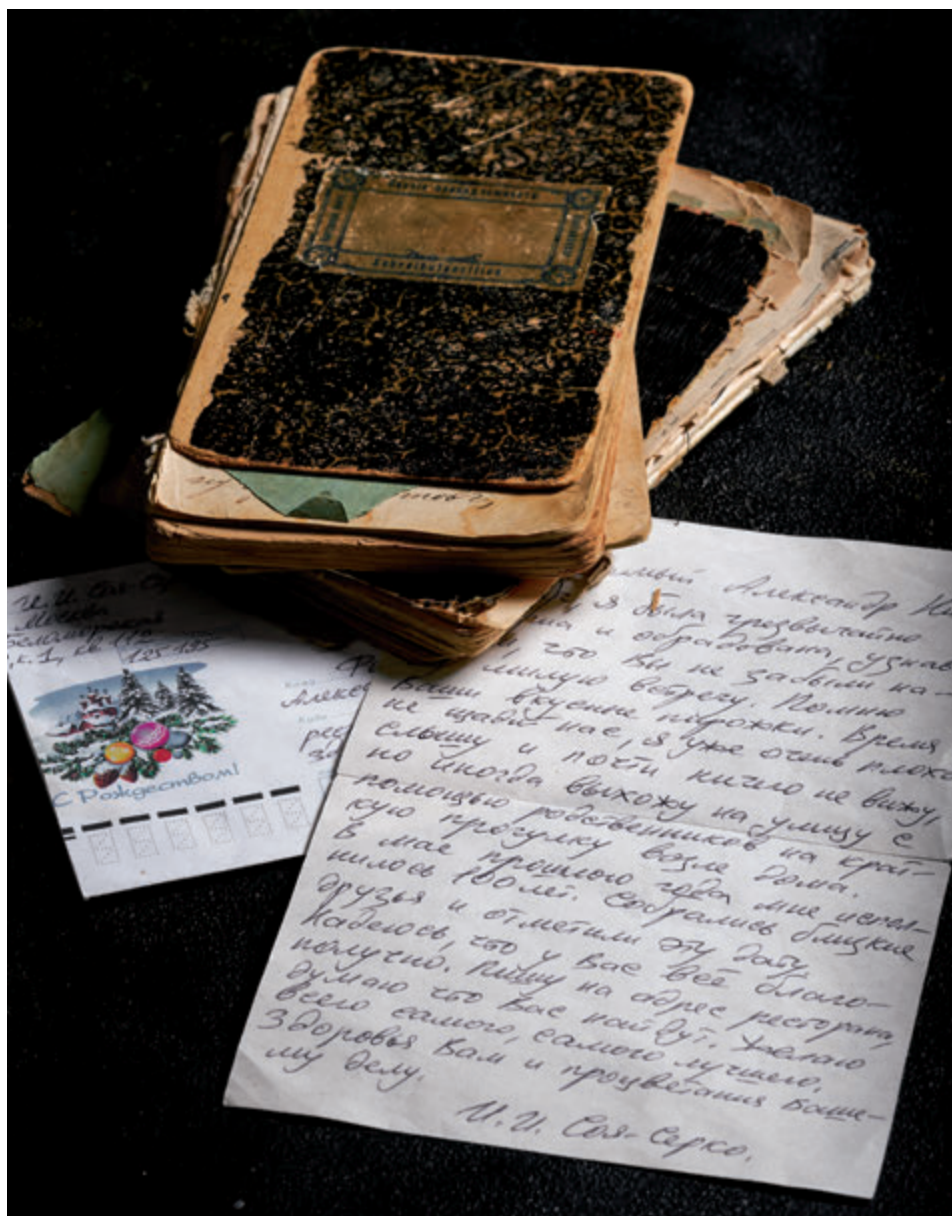 Schreibutensilien
И. И. Соя-Се
Москва
к. 1, кв. 112
125195
Алекс
С Рождеством!
Александр
я была чрезвычайно
и обрадована, узнав
что Вы не забыли на-
милую встречу. Помню
Ваши вкусные пирожки. Время
не щадит нас, я уже очень плохо
слышу и почти ничего не вижу
но иногда выхожу на улицу с
помощью родственников на крат-
кую прогулку возле дома.
В мае прошлого года мне испол-
нилось 100 лет. Собрались близкие
друзья и отметили эту дату.
Надеюсь, что у Вас всё благо-
получно. Пишу на адрес ресторана,
думаю что Вас найдут. Желаю
всего самого, самого лучшего.
Здоровья Вам и процветания Ваше-
му делу.
И. И. Соя-Серко.